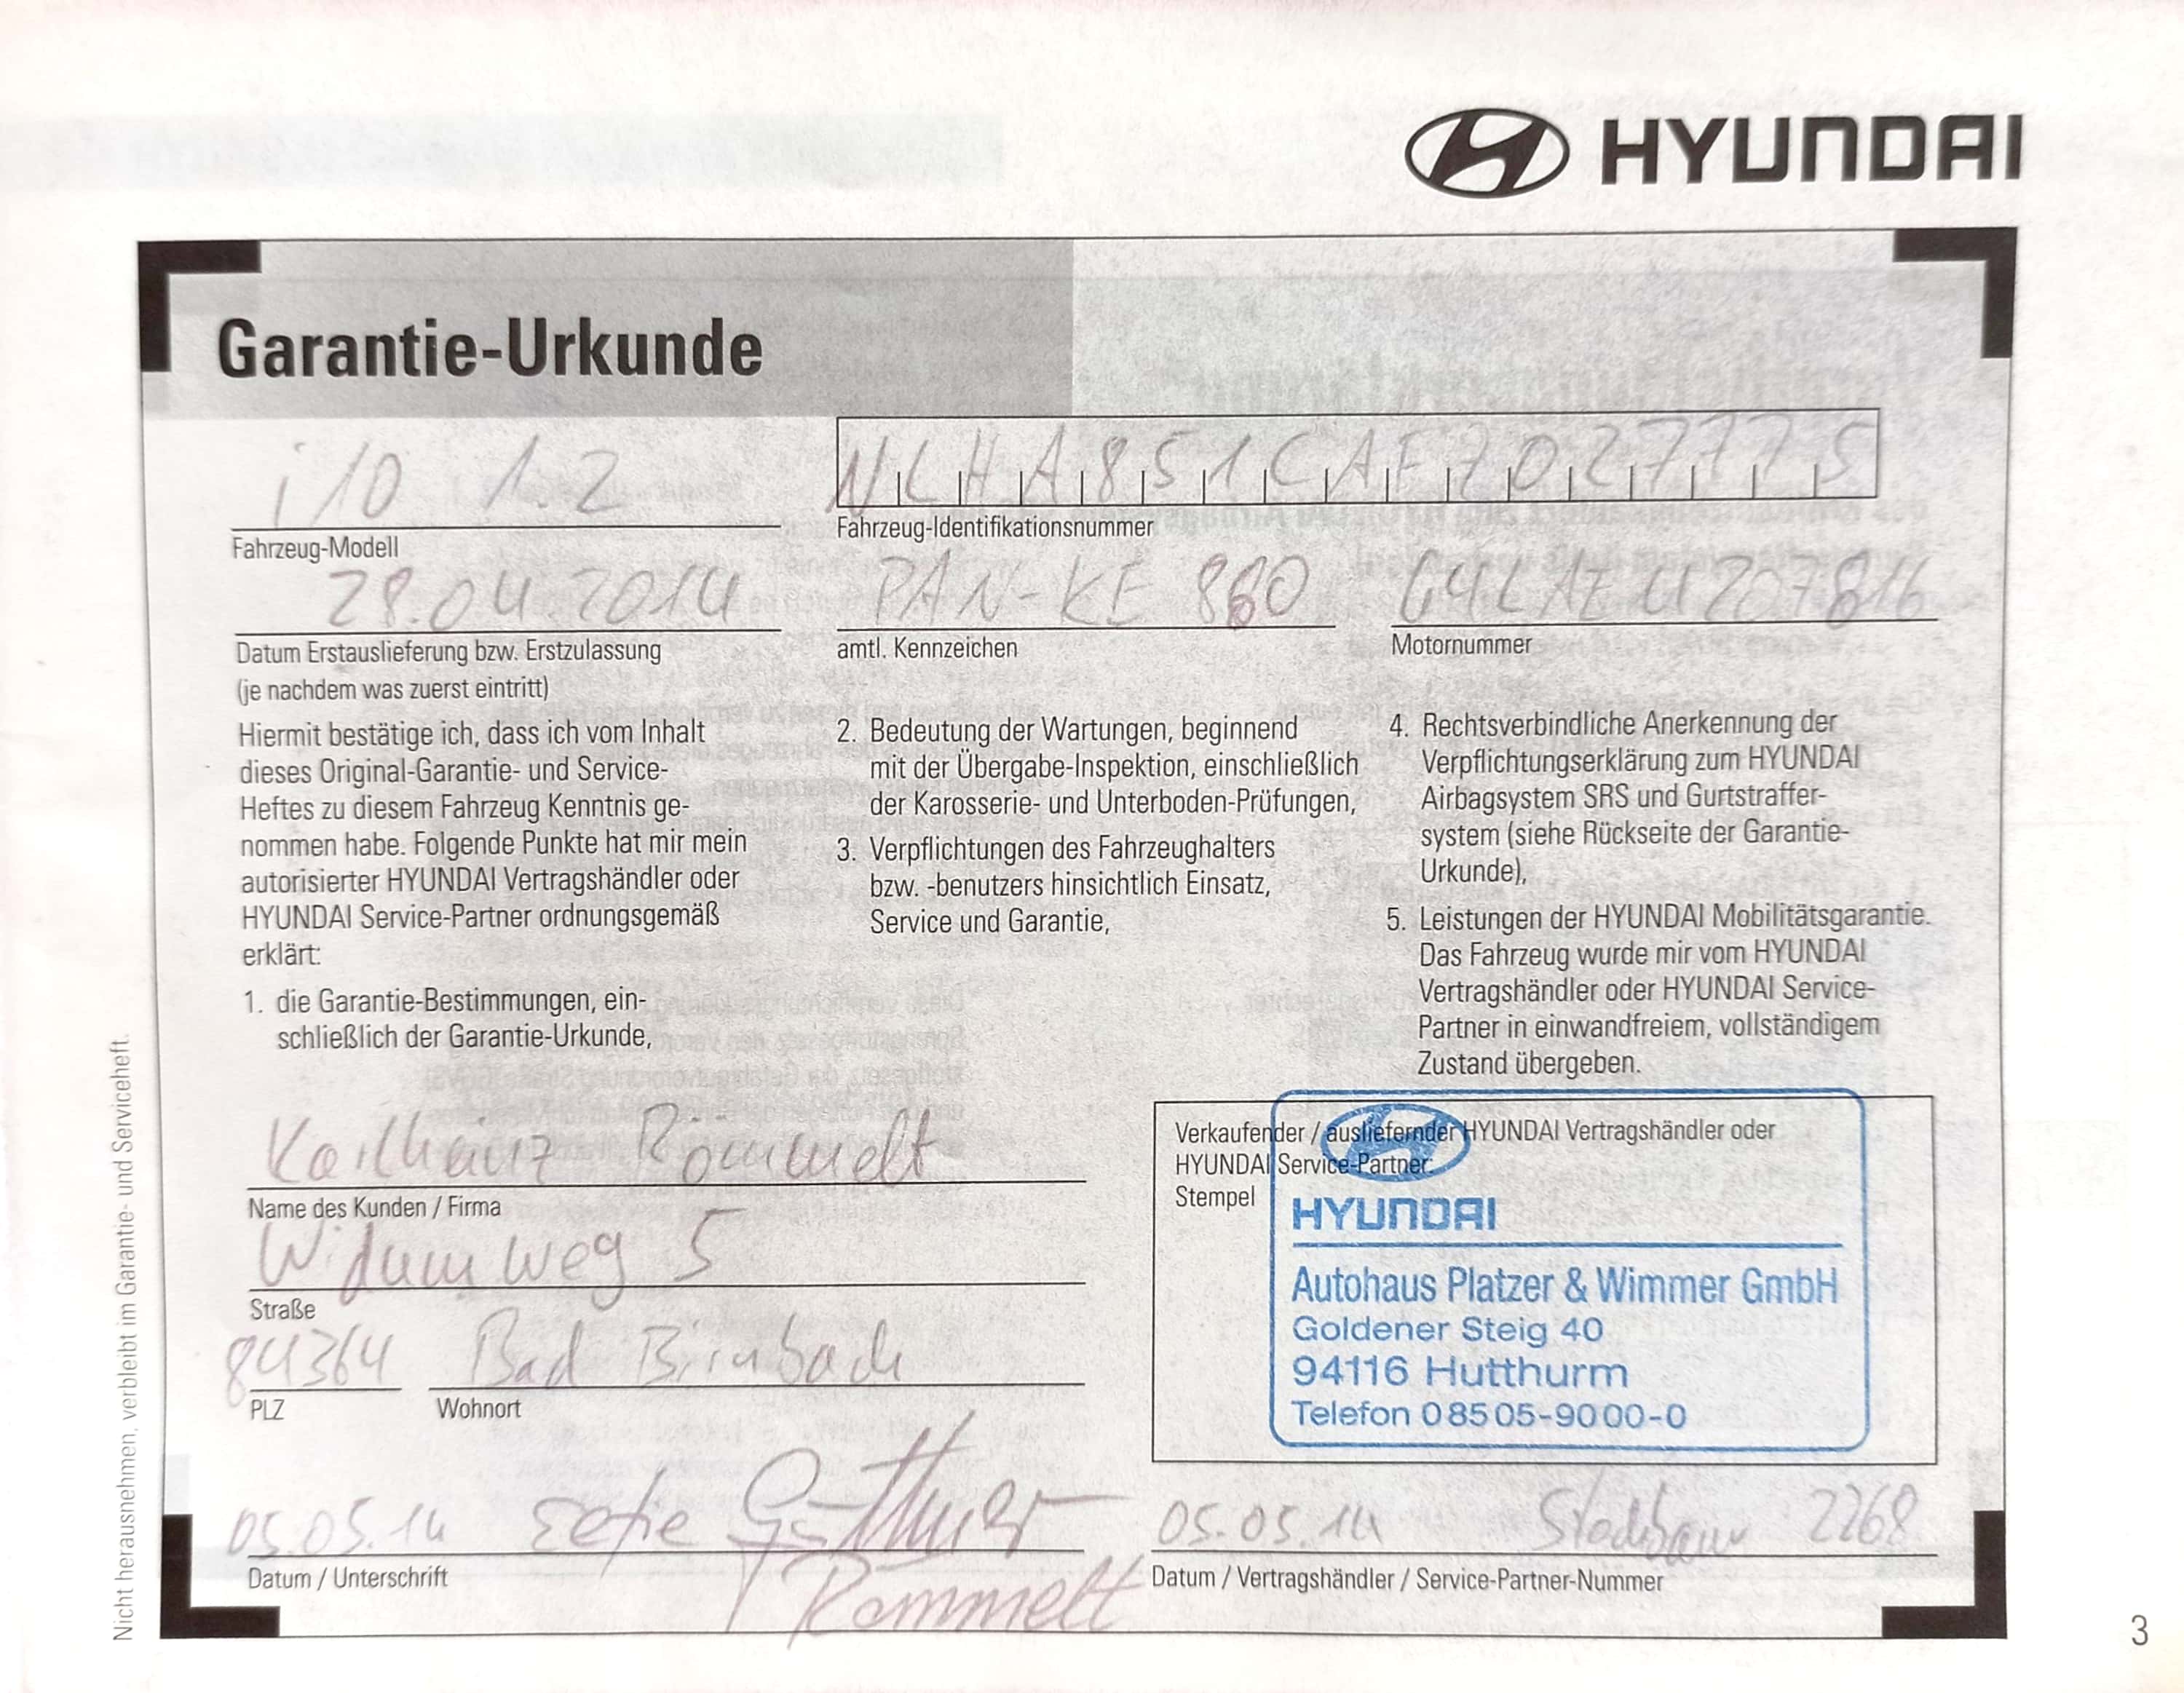 HYUNDAI
Garantie-Urkunde
i10 1.2
Fahrzeug-Modell
NLHA851CAFZ027775
Fahrzeug-Identifikationsnummer
28.04.2014
Datum Erstauslieferung bzw. Erstzulassung
(je nachdem was zuerst eintritt)
PAN-KE 860
amtl. Kennzeichen
Motornummer
Hiermit bestätige ich, dass ich vom Inhalt
dieses Original-Garantie- und Service-
Heftes zu diesem Fahrzeug Kenntnis ge-
nommen habe. Folgende Punkte hat mir mein
autorisierter HYUNDAI Vertragshändler oder
HYUNDAI Service-Partner ordnungsgemäß
erklärt:
1. die Garantie-Bestimmungen, ein-
schließlich der Garantie-Urkunde,
2. Bedeutung der Wartungen, beginnend
mit der Übergabe-Inspektion, einschließlich
der Karosserie- und Unterboden-Prüfungen,
3. Verpflichtungen des Fahrzeughalters
bzw. -benutzers hinsichtlich Einsatz,
Service und Garantie,
4. Rechtsverbindliche Anerkennung der
Verpflichtungserklärung zum HYUNDAI
Airbagsystem SRS und Gurtstraffer-
system (siehe Rückseite der Garantie-
Urkunde),
5. Leistungen der HYUNDAI Mobilitätsgarantie.
Das Fahrzeug wurde mir vom HYUNDAI
Vertragshändler oder HYUNDAI Service-
Partner in einwandfreiem, vollständigem
Zustand übergeben.
Karlheinz Römmelt
Name des Kunden / Firma
Widumweg 5
Straße
84364 Bad Birnbach
PLZ Wohnort
05.05.14
Römmelt
Datum / Unterschrift
Verkaufender / ausliefernder HYUNDAI Vertragshändler oder
HYUNDAI Service-Partner:
Stempel
HYUNDAI
Autohaus Platzer & Wimmer GmbH
Goldener Steig 40
94116 Hutthurm
Telefon 0 85 05-90 00-0
05.05.14 2268
Datum / Vertragshändler / Service-Partner-Nummer
Nicht herausnehmen, verbleibt im Garantie- und Serviceheft.
3